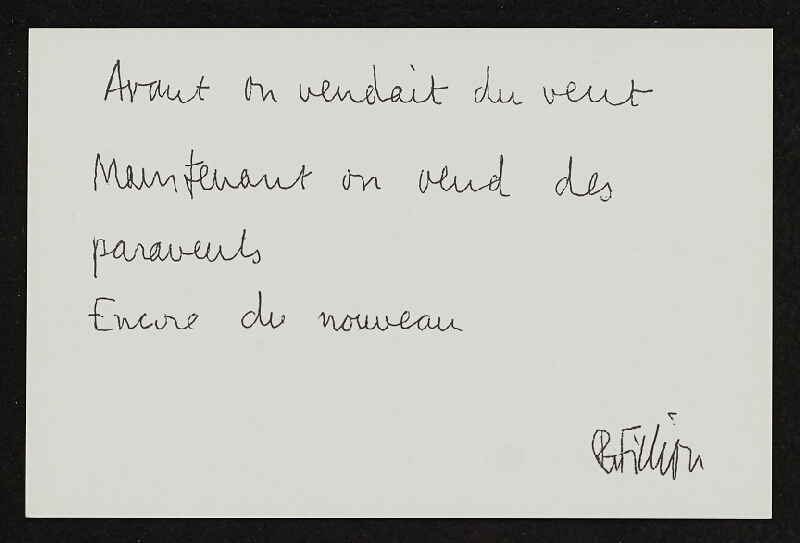 Avant on vendait du vent
Maintenant on vend des
paravents
Encore du nouveau
R. Fillion